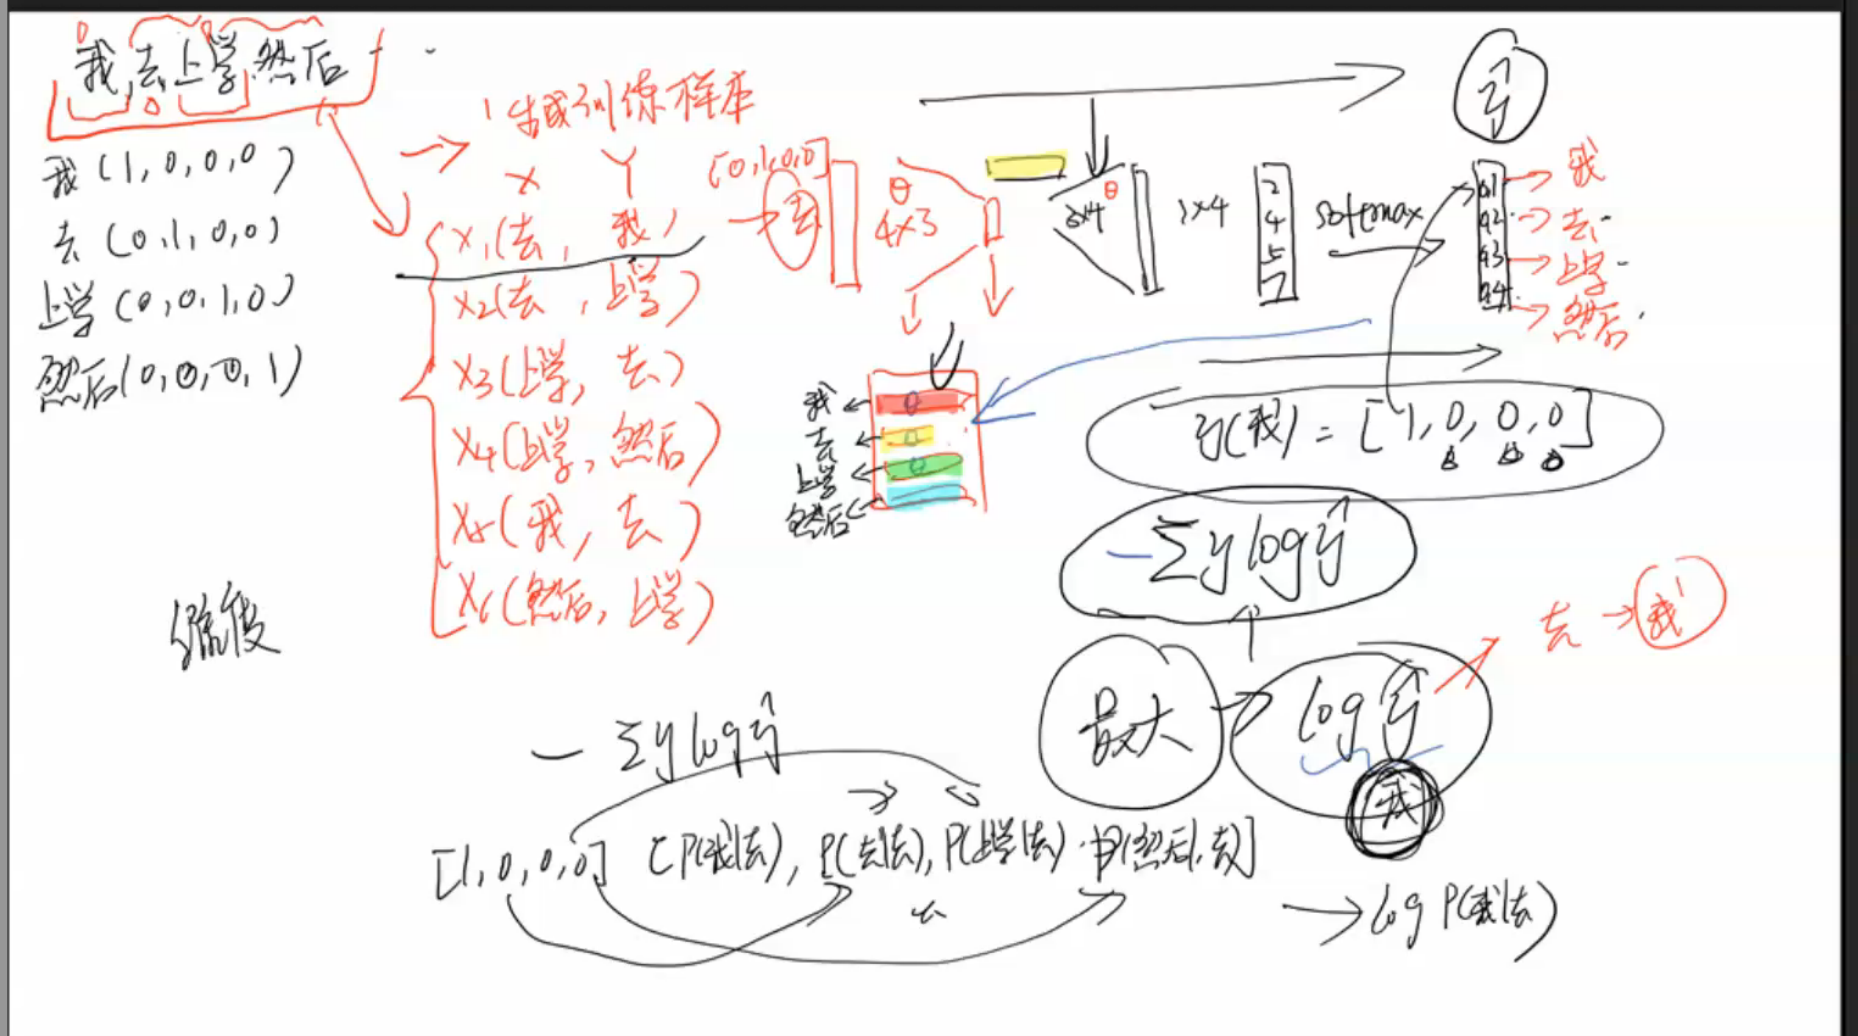 我,去,上学,然后
我 (1, 0, 0, 0)
去 (0, 1, 0, 0)
上学 (0, 0, 1, 0)
然后 (0, 0, 0, 1)
生成训练样本
X Y
X1(去, 我)
X2(去, 上学)
X3(上学, 去)
X4(上学, 然后)
X5(我, 去)
X6(然后, 上学)
[0,1,0,0]
去
θ
4×3
我
去
上学
然后
θ
3×4
1×4
2
4
5
7
softmax
ŷ
0.1
0.2
0.3
0.4
我
去
上学
然后
y(我) = [1, 0, 0, 0]
-Σy log ŷ
去 → 我
最大
log ŷ
我
- Σy log ŷ
[1, 0, 0, 0] [P(我|去), P(去|去), P(上学|去), P(然后|去)]
→ log P(我|去)